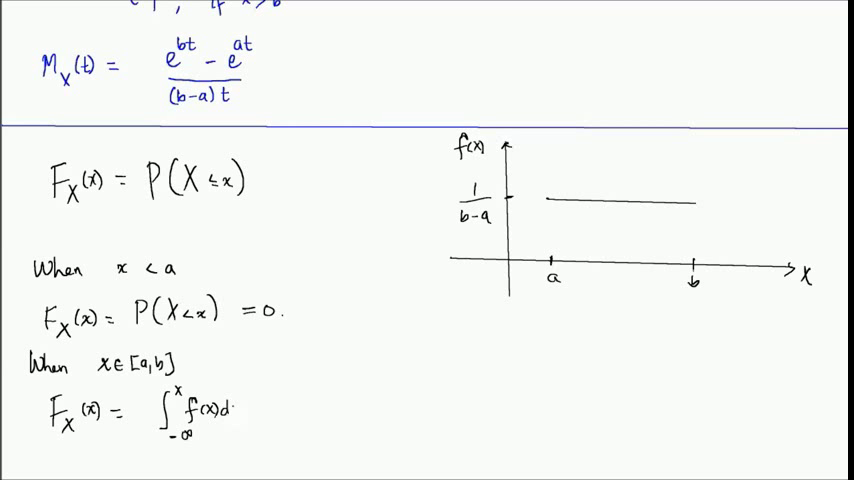 if x > b
M_X(t) = (e^{bt} - e^{at}) / ((b-a)t)
F_X(x) = P(X ≤ x)
When x < a
F_X(x) = P(X < x) = 0.
When x ∈ [a,b]
F_X(x) = ∫_{-∞}^{x} f(x)d
f(x)
1/(b-a)
a
b
X